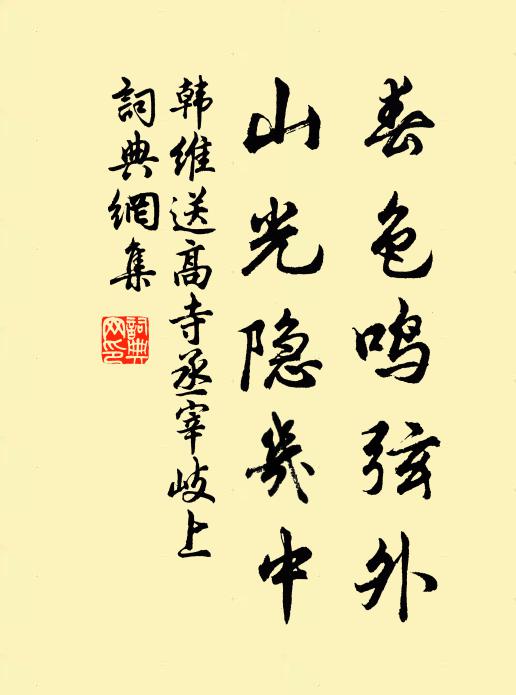 春色鸣弦外
山光隐几中
韩维送高寺丞宰岐上
词典网集
词典网印